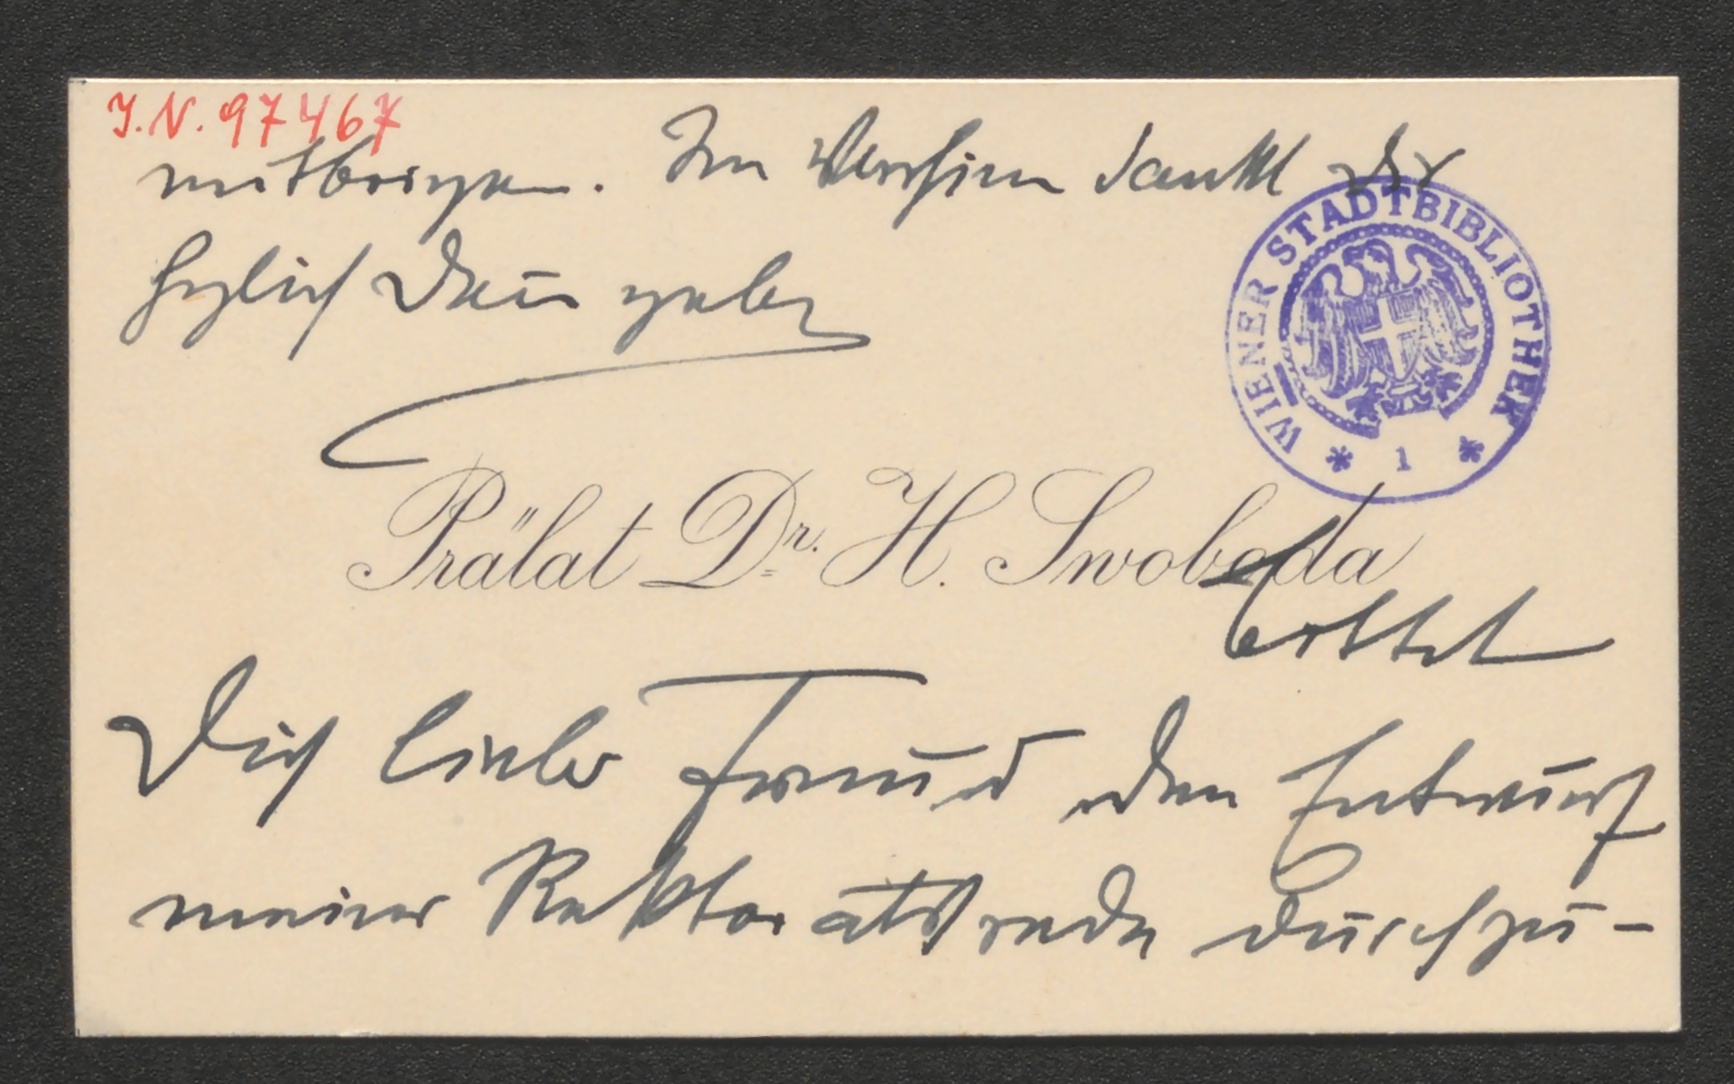 J.N. 97467
mitbringen. Im Vorhinein dankt Dir
herzlich Dein ergeb.
WIENER STADTBIBLIOTHEK
1
Prälat Dr. H. Swoboda
bittet
Dich lieber Freund den Entwurf
meiner Rektoratsrede durchzu-